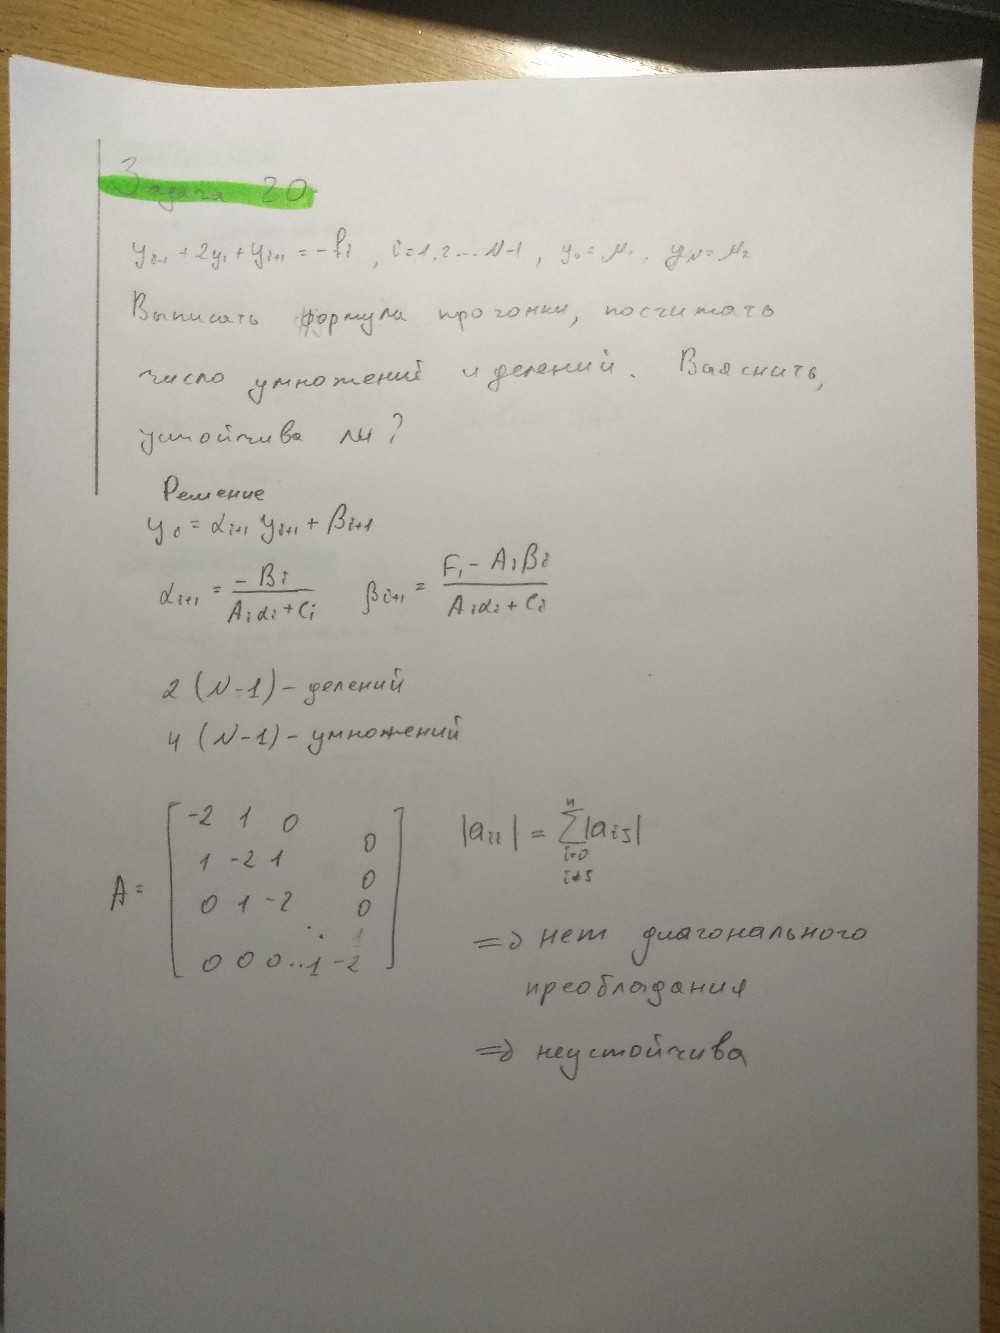 Задача 20
y_{i-1} + 2y_i + y_{i+1} = -f_i, i = 1, 2 ... N-1, y_0 = μ_1, y_N = μ_2
Выписать формула прогонки, посчитать
число умножений и делений. Выяснить,
устойчива ли?
Решение
y_i = α_{i+1} y_{i+1} + β_{i+1}
α_{i+1} = \frac{-B_i}{A_i α_i + C_i} β_{i+1} = \frac{F_i - A_i β_i}{A_i α_i + C_i}
2 (N-1) - делений
4 (N-1) - умножений
A = [
-2 1 0 0
1 -2 1 0
0 1 -2 0
⋱ 1
0 0 0 .. 1 -2
]
|a_{ii}| = \sum_{i=0, i≠j}^{n} |a_{ij}|
=> нет диагонального
преобладания
=> неустойчива